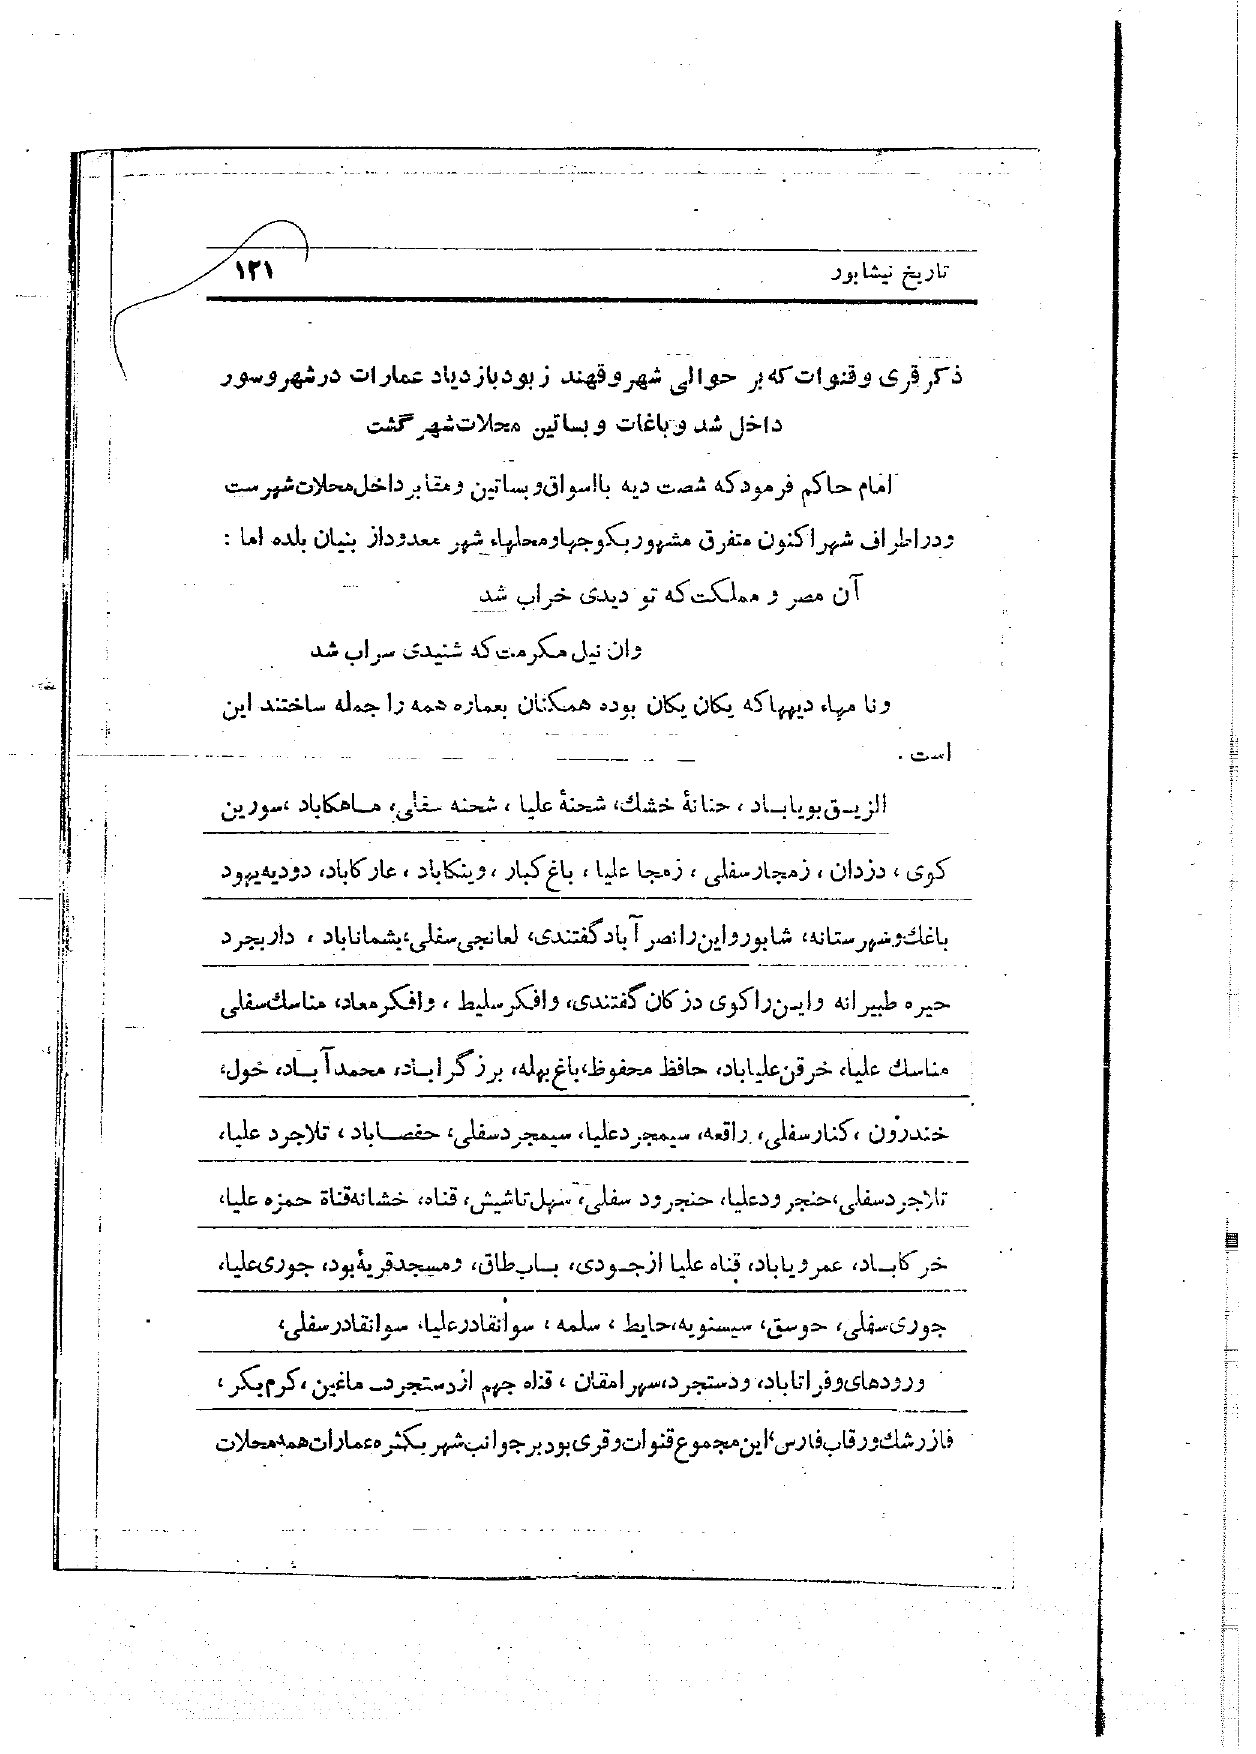 تاریخ نیشابور
۱۲۱
ذکر قری و قنوات که بر حوالی شهر و قهند ز بود بازدیاد عمارات در شهر و سور
داخل شد و باغات و بساتین محلات شهر گشت
امام حاکم فرمود که شصت دیه بااسواق و بساتین و مقابر داخل محلات شهرست
و در اطراف شهر اکنون متفرق مشهور بکوچها و محلهاء شهر معدود از بنیان بلده اما :
آن مصر و مملکت که تو دیدی خراب شد
وان نیل مکرمت که شنیدی سراب شد
و نا مهاء دیهها که یکان یکان بوده همکنان بعماره همه را جمله ساختند این
است .
الزیق بویاباد ، حنانهٔ خشك، شحنهٔ علیا ، شحنه سفلی، ماهکاباد ،سورین
کوی ، دزدان ، زمجار سفلی ، زمجا علیا ، باغ کبار ، وینکاباد ، عار کاباد، دودیه یهود
باغك و شهرستانه، شاپور و این را نصر آباد گفتندی، لعانجی سفلی، بشماناباد ، داربجرد
حیره طبیرانه و ایـن را کوی دز کان گفتندی، وافکر سلیط ، وافکر معاد، مناسك سفلی
مناسك علیا، خرقن علیاباد، حافظ محفوظ،باغ بهله، برزگراباد، محمدآباد، خول،
خندرون ، کنار سفلی، راقعه، سیمجرد علیا، سیمجرد سفلی، حفصاباد ، تلاجرد علیا،
تلاجرد سفلی،حنجرود علیا، حنجرود سفلی، سهل تاشیش، قناه، خشانه قناة حمزه علیا،
خرکاباد، عمرویاباد، قناه علیا ازجودی، باب طاق، و مسجد قریهٔ بود، جوری علیا،
جوری سفلی، جوسق، سیسنویه،حایط ، سلمه ، سوانقادر علیا، سوانقادر سفلی،
ورودهای و فراتاباد، و دستجرد،سهرامقان ، قناه جهم از دستجرد ماغین ،کرم بکر ،
فازرشك و رقاب فارس،این مجموع قنوات و قری بود بر جوانب شهر بکثره عمارات همه محلات